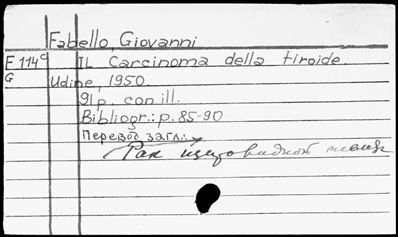 Fabello, Giovanni
E 114c IL Carcinoma della tiroide
G Udine, 1950
91 p. con ill.
Bibliogr.: p. 85-90
Перевод загл.:
Рак щитовидной железы